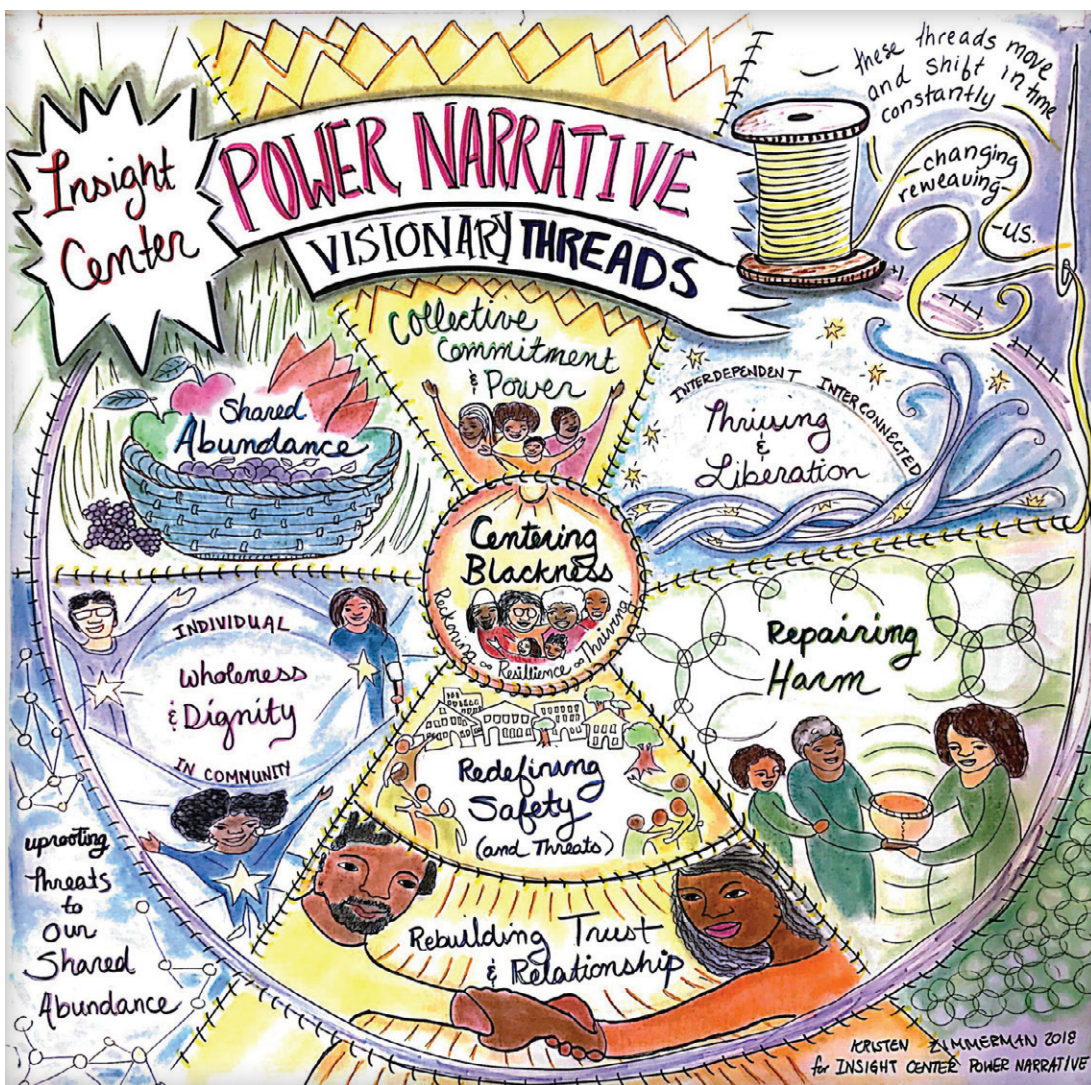 Insight
Center
POWER NARRATIVE
VISIONARY THREADS
these threads move
and shift in time
constantly
-changing
reweaving-
-us.
Collective
Commitment
& Power
Shared
Abundance
INTERDEPENDENT INTERCONNECTED
Thriving
&
Liberation
Centering
Blackness
Reckoning ∞ Resillience ∞ Thriving!
INDIVIDUAL
Wholeness
& Dignity
IN COMMUNITY
Repairing
Harm
Redefining
Safety
(and Threats)
Rebuilding Trust
& Relationship
uprooting
threats
to
Our
Shared
Abundance
KRISTEN ZIMMERMAN 2018
for INSIGHT CENTER POWER NARRATIVE